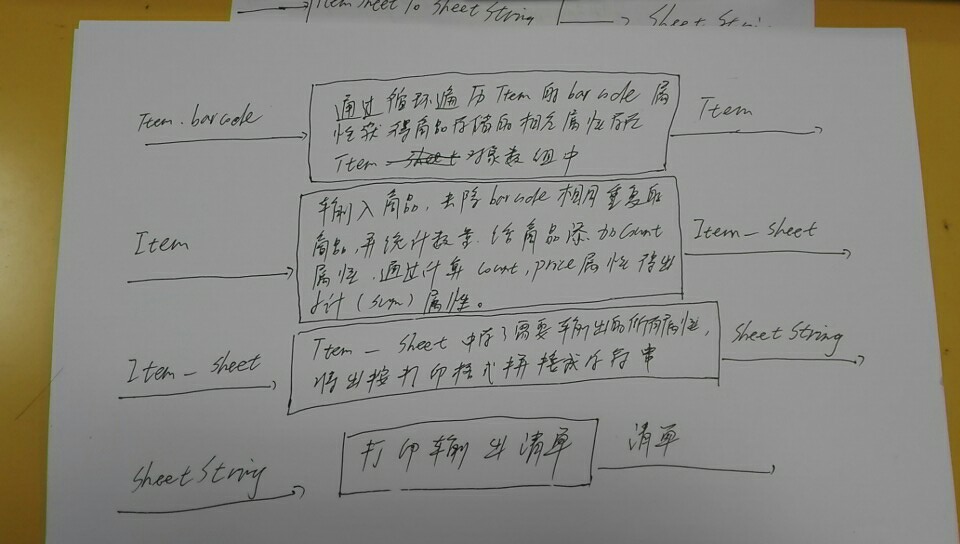 Item Sheet To Sheet String
Sheet Stri
Item.barcode
通过循环遍历Item的barcode属
性获得商品存储的相应属性存在
Item sheet 对象数组中
Item
Item
输入商品,去除barcode相同重复的
商品,再统计数量.给商品添加count
属性.通过计算count,price属性得出
小计(sum)属性。
Item_sheet
Item_sheet
Item_sheet中存了需要输出的所有属性,
将出按打印格式拼接成字符串
SheetString
SheetString
打印输出清单
清单